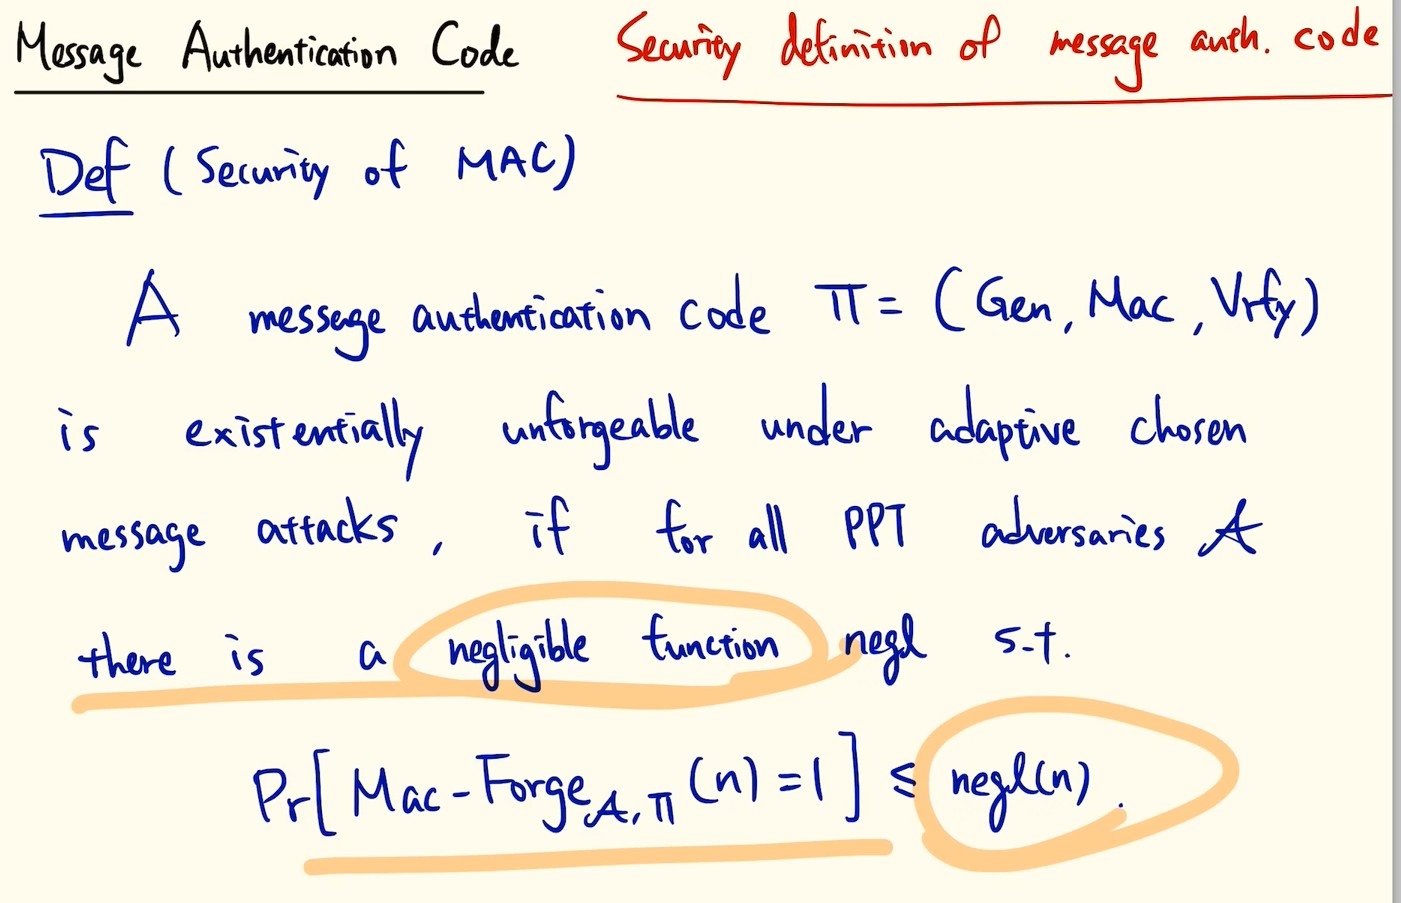 Message Authentication Code
Security definition of message auth. code
Def (Security of MAC)
A message authentication code Π = (Gen, Mac, Vrfy)
is existentially unforgeable under adaptive chosen
message attacks, if for all PPT adversaries 𝒜
there is a negligible function negl s.t.
Pr[Mac-Forge_{𝒜,Π}(n)=1] ≤ negl(n).